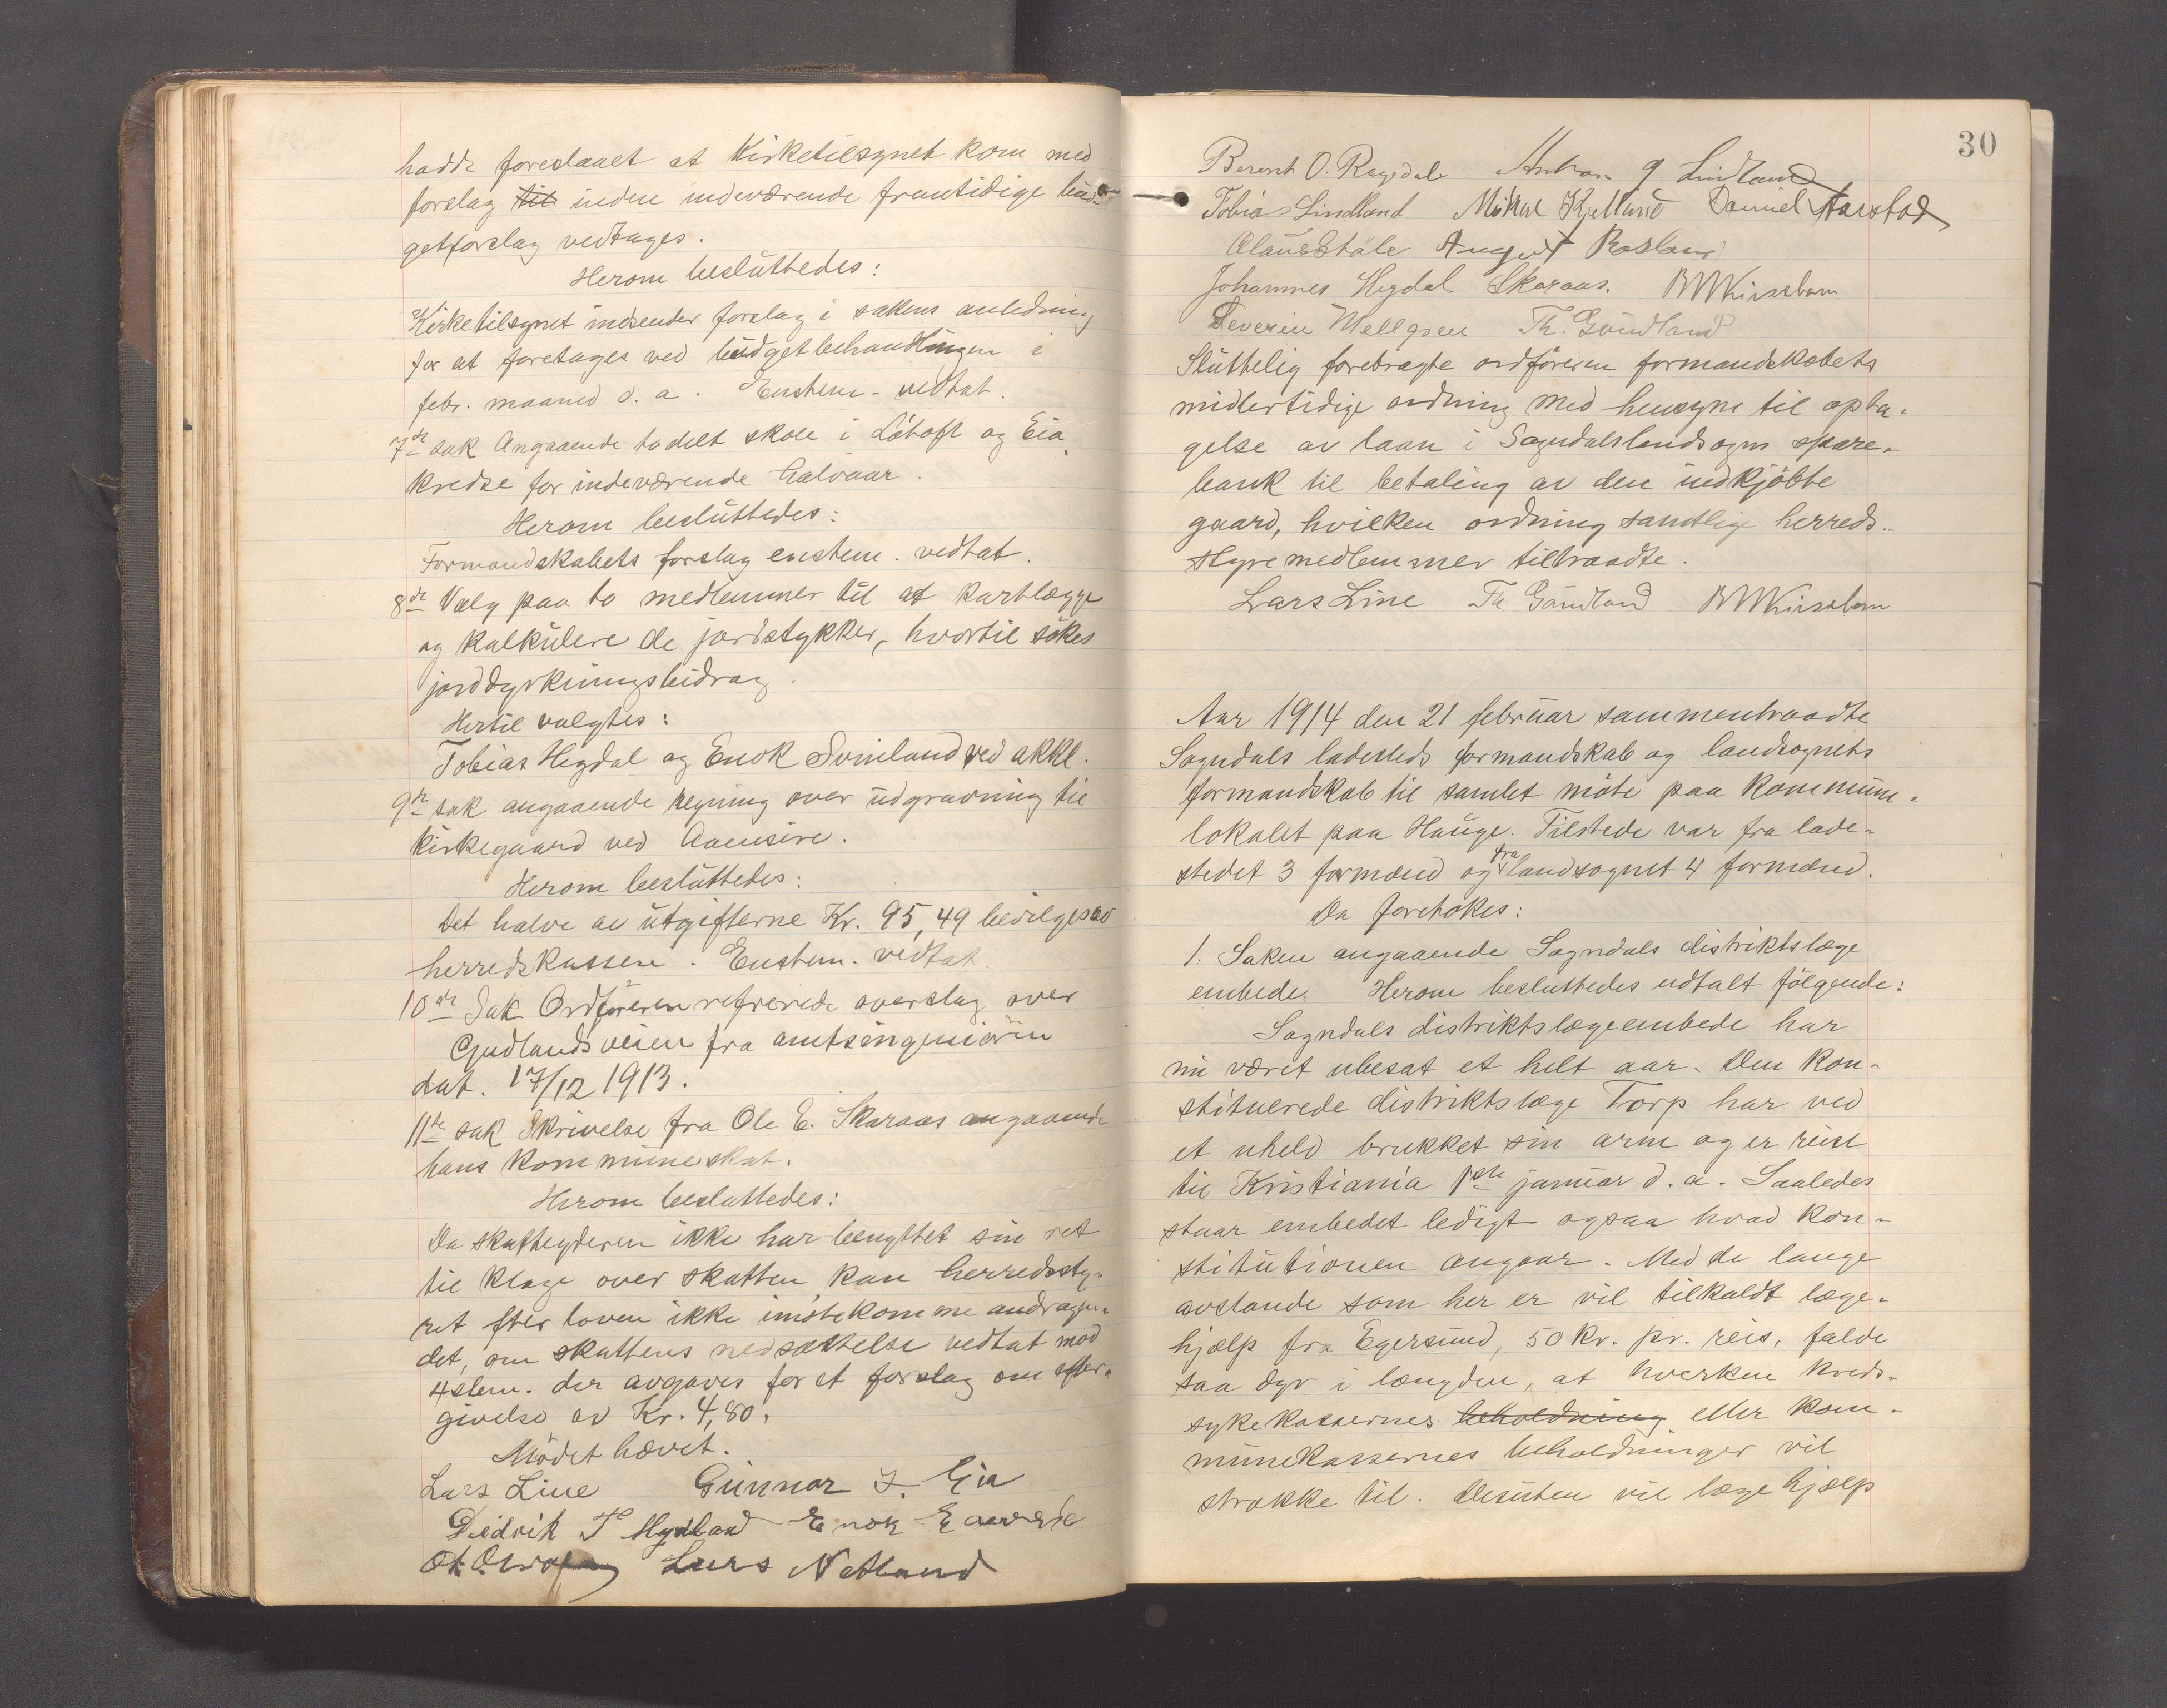 hadde foreslaaet at Kirketilsynet kom med
forslag til inden indeværende fremtidige bud-
getforslag vedtages.
Herom besluttedes:
Kirketilsynet indsender forslag i sakens anledning
for at foretages ved budgetbehandlingen i
febr. maaned d. a. Enstem. vedtat.
7de sak Angaaende todelt skole i Løtoft og Eia
kredse for indeværende halvaar.
Herom besluttedes:
Formandskabets forslag enstem. vedtat.
8de Valg paa to medlemmer til at kartlægge
og kalkulere de jordstykker, hvortil søkes
jorddyrkningsbidrag.
Hertil valgtes:
Tobias Hegdal og Enok Svinland ved akkl.
9de sak angaaende regning over udgravning til
kirkegaard ved Aaensire.
Herom besluttedes:
Det halve av utgifterne Kr. 95,49 bevilges av
herredskassen. Enstem. vedtat.
10de Sak Ordføreren refererede overslag over
Gudlandsveien fra amtsingeniøren
dat. 17/12 1913.
11te sak Skrivelse fra Ole E. Skaraas angaaende
hans kommuneskat.
Herom besluttedes:
Da skatteyderen ikke har benyttet sin ret
til klage over skatten kan herredssty-
ret efter loven ikke imøtekomme andragen-
det, om skattens nedsættelse vedtat mod
4 stem. der avgaves for et forslag om efter-
givelse av Kr. 4,80.
Mødet hævet.
Lars Line Gunnar T. Eia
Diedrik T Mydland Enok E
Lars Netland
30
Berent O. Rægdal Anton G. Lindland
Tobias Lindland Mikal Kjelland Daniel Aarstad
Claus Ståle August Rosland
Johannes Hegdal Skaraas. BMKirsebom
Severin Mellgren Th. Gåudland
Sluttelig forebragte ordføreren formandskabets
midlertidige ordning med hensyn til opta-
gelse av laan i Sogndalslandsogns spare-
bank til betaling av den indkjøbte
gaard, hvilken ordning samtlige herreds-
styremedlemmer tiltraadte.
Lars Line Th Gåudland BMKirsebom
Aar 1914 den 21 februar sammentraadte
Sogndals ladesteds formandskab og landsognets
formandskab til samlet møte paa Kommune-
lokalet paa Hauge. Tilstede var fra lade-
stedet 3 formænd og fra landsognet 4 formænd.
Da foretokes:
1. Saken angaaende Sogndals distriktslæge
embede. Herom besluttedes udtalt følgende:
Sogndals distriktslægeembede har
nu været ubesat et helt aar. Den kon-
stituerede distriktslæge Torp har ved
et uheld brukket sin arm og er reist
til Kristiania 1ste januar d. a. Saaledes
staar embedet ledigt ogsaa hvad kon-
stitutionen angaar. Med de lange
avstande som her er vil tilkaldt læge-
hjælp fra Egersund, 50 kr. pr. reis, falde
saa dyr i længden, at hverken kreds-
sykekassernes beholdning eller kom-
munekassernes beholdninger vil
strække til. Desuten vil lægehjælp